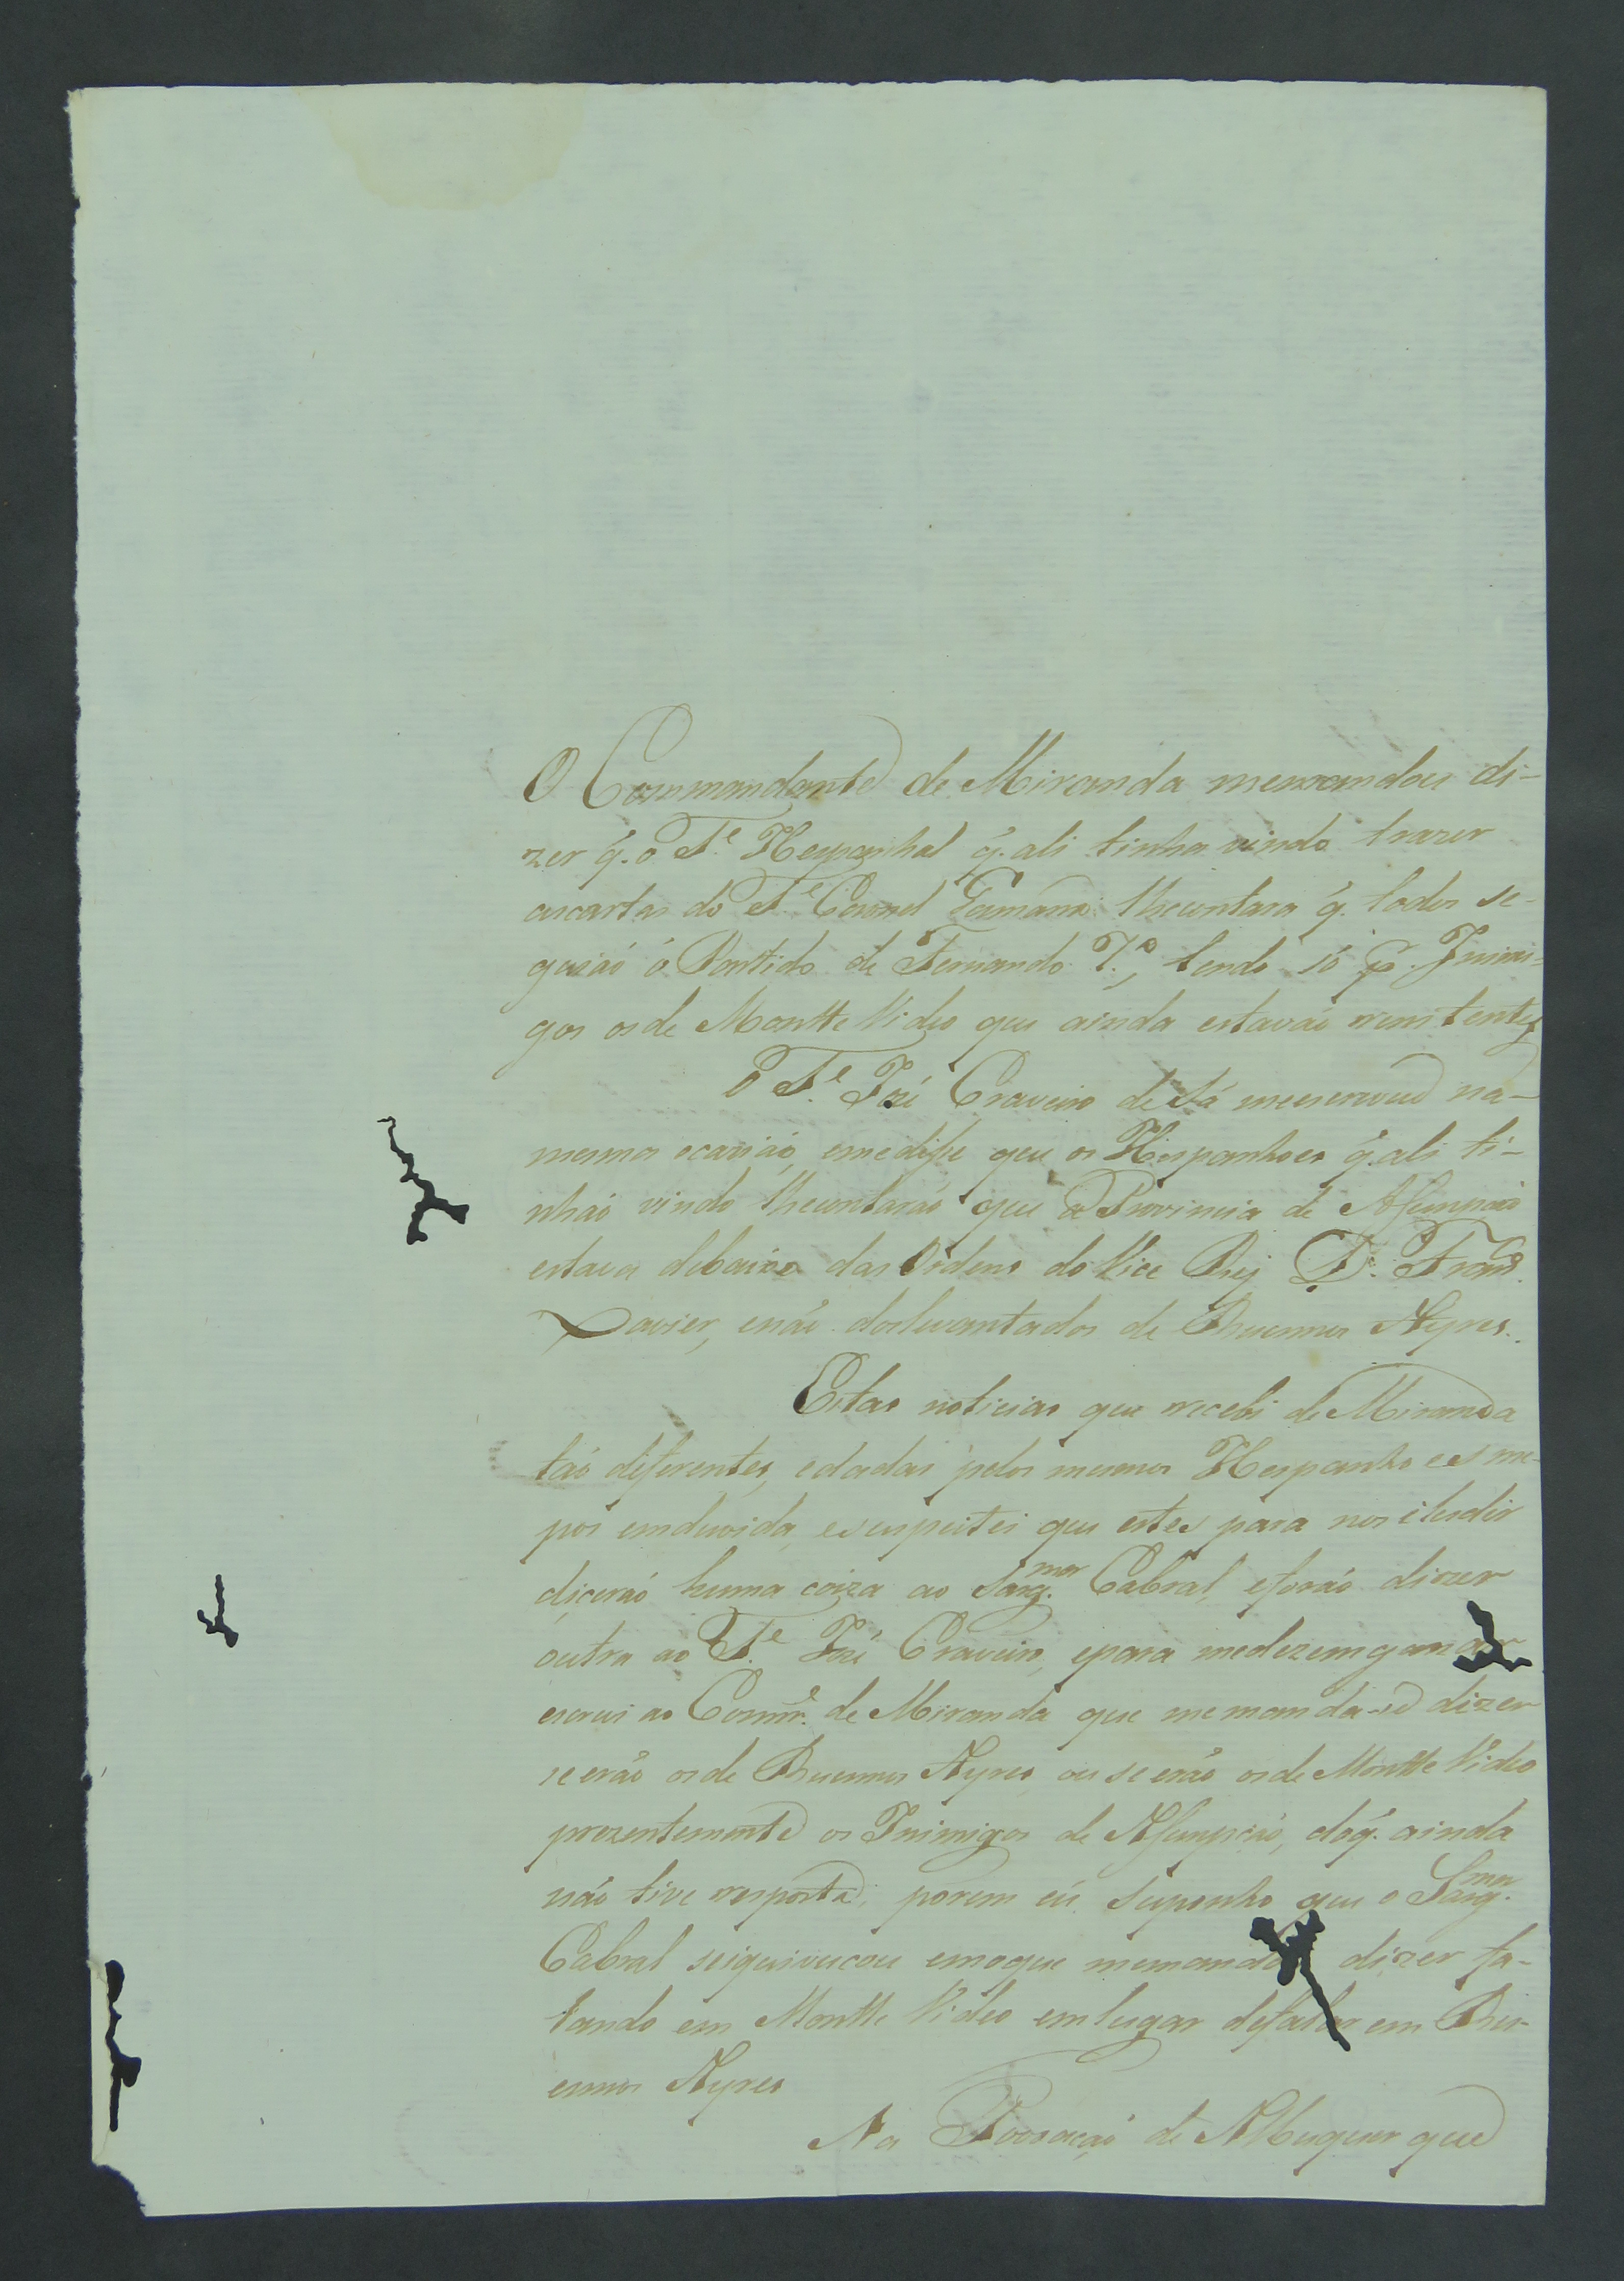 O Commandante de Miranda memandou di-
zer q̃. o T.e Hespanhol q̃. ali tinha vindo trazer
ascartas do T.e Coronel lhecontara q̃. todos se-
guiaõ o Partido de Fernando 7.º, tendo só p.r Inimi-
gos osde Montte Video que ainda estavaõ renitentes
O T.e Jozé Craveiro de Sá meescreveu na-
mesma ocaziaõ, emedisse que os Hespanhoes q̃. ali ti-
nhaõ vindo lhecontaraõ que a Provincia de Assumpçaõ
estava debaixo das Ordens do Vice Rej D. Fran.co
Xavier, enaõ dos levantados de Buennos Ayres.
Estas noticias que recebi de Miranda
taõ diferentes, edadas pelos mesmos Hespanhoes me-
pos emduvida, esuspeitei que estes para nos iludir
diceraõ huma coiza ao Sarg.mor Cabral, eforaõ dizer
outra ao T.e Jozé Craveiro, epara medezemganar
escrevi ao Comm.e de Miranda que memanda-se dizer
seeraõ osde Buennos Ayres, ou seeraõ osde Montte Video
prezentemente os Inimigos de Assumpçaõ, doq̃. ainda
naõ tive resposta; porem eú suponho que o Sarg.mor
Cabral seiquivucou emoque memandou dizer fa-
lando em Montte Video emlugar defalar em Bu-
ennos Ayres
Na Povoaçaõ de Albuquerque